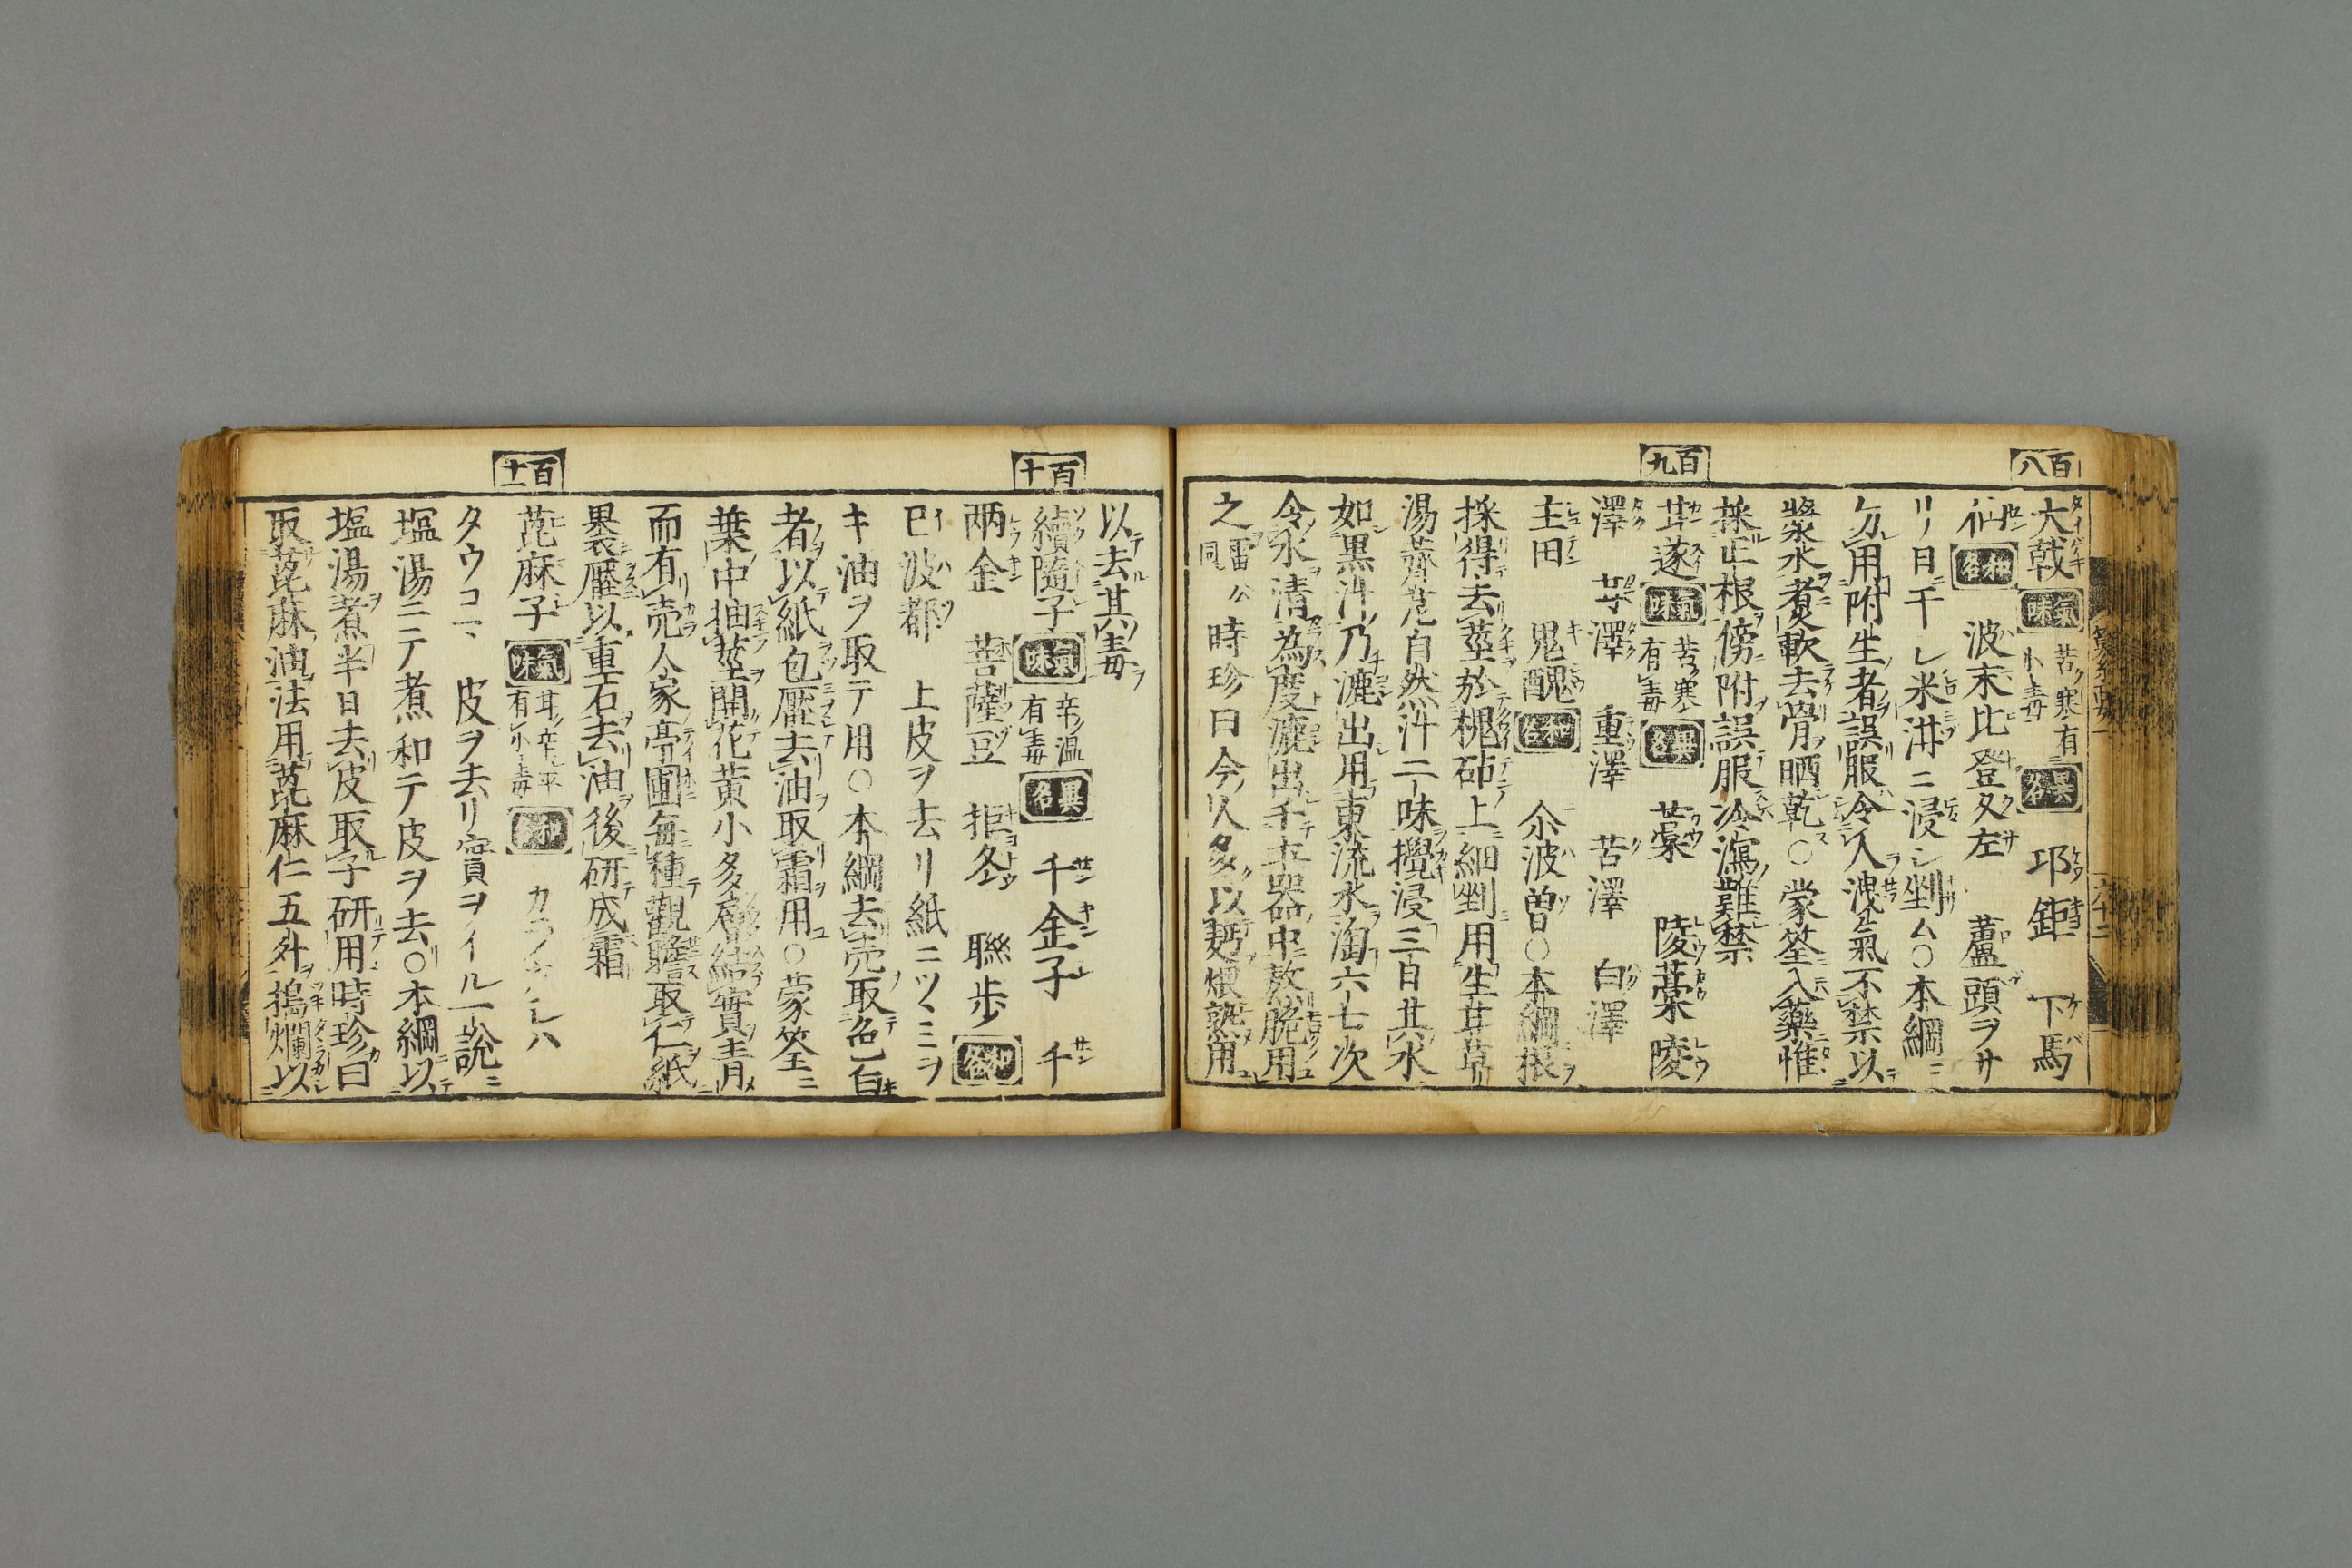 百八
大戟 氣味 苦寒有小毒 異名 邛鉅 下馬
仙 和名 波末比登久左 蘆頭ヲサ
リ日干レ米泔ニ浸シ剉ム○本綱ニ
勿用附生者誤服令人洩氣不禁以
漿水煮軟去骨晒乾○蒙筌入藥惟
採正根傍附誤服冷瀉難禁
百九
甘遂 氣味 苦寒有毒 異名 藁 陵藁 陵
澤 甘澤 重澤 苦澤 白澤
主田 鬼醜 和名 尒波曽○本綱根ヲ
採得去莖於槐砧上細剉用生甘草
湯薺苨自然汁二味攪浸三日其水
如黒汁乃漉出用東流水淘六七次
令水清為度漉出于土器中熬脆用
之雷公同時珍曰今人多以麪煨熟用
以去其毒
百十
續隨子 氣味 辛温有毒 異名 千金子 千
兩金 菩薩豆 拒冬 聯歩 和名
巳波都 上皮ヲ去リ紙ニツミヲ
キ油ヲ取テ用○本綱去売取色白
者以紙包壓去油取霜用○蒙筌ニ
葉中抽莖開花黄小多 結實青
而有売人家亭圃毎種觀瞻取仁紙
裹壓以重石去油後研成霜
百十一
蓖麻子 氣味 甘辛平有小毒 和名
タウコマ 皮ヲ去リ實ヲイル一説ニ
塩湯ニテ煮和テ皮ヲ去○本綱以
塩湯煮半日去皮取子研用時珍曰
取蓖麻油法用蓖麻仁五升搗爛以